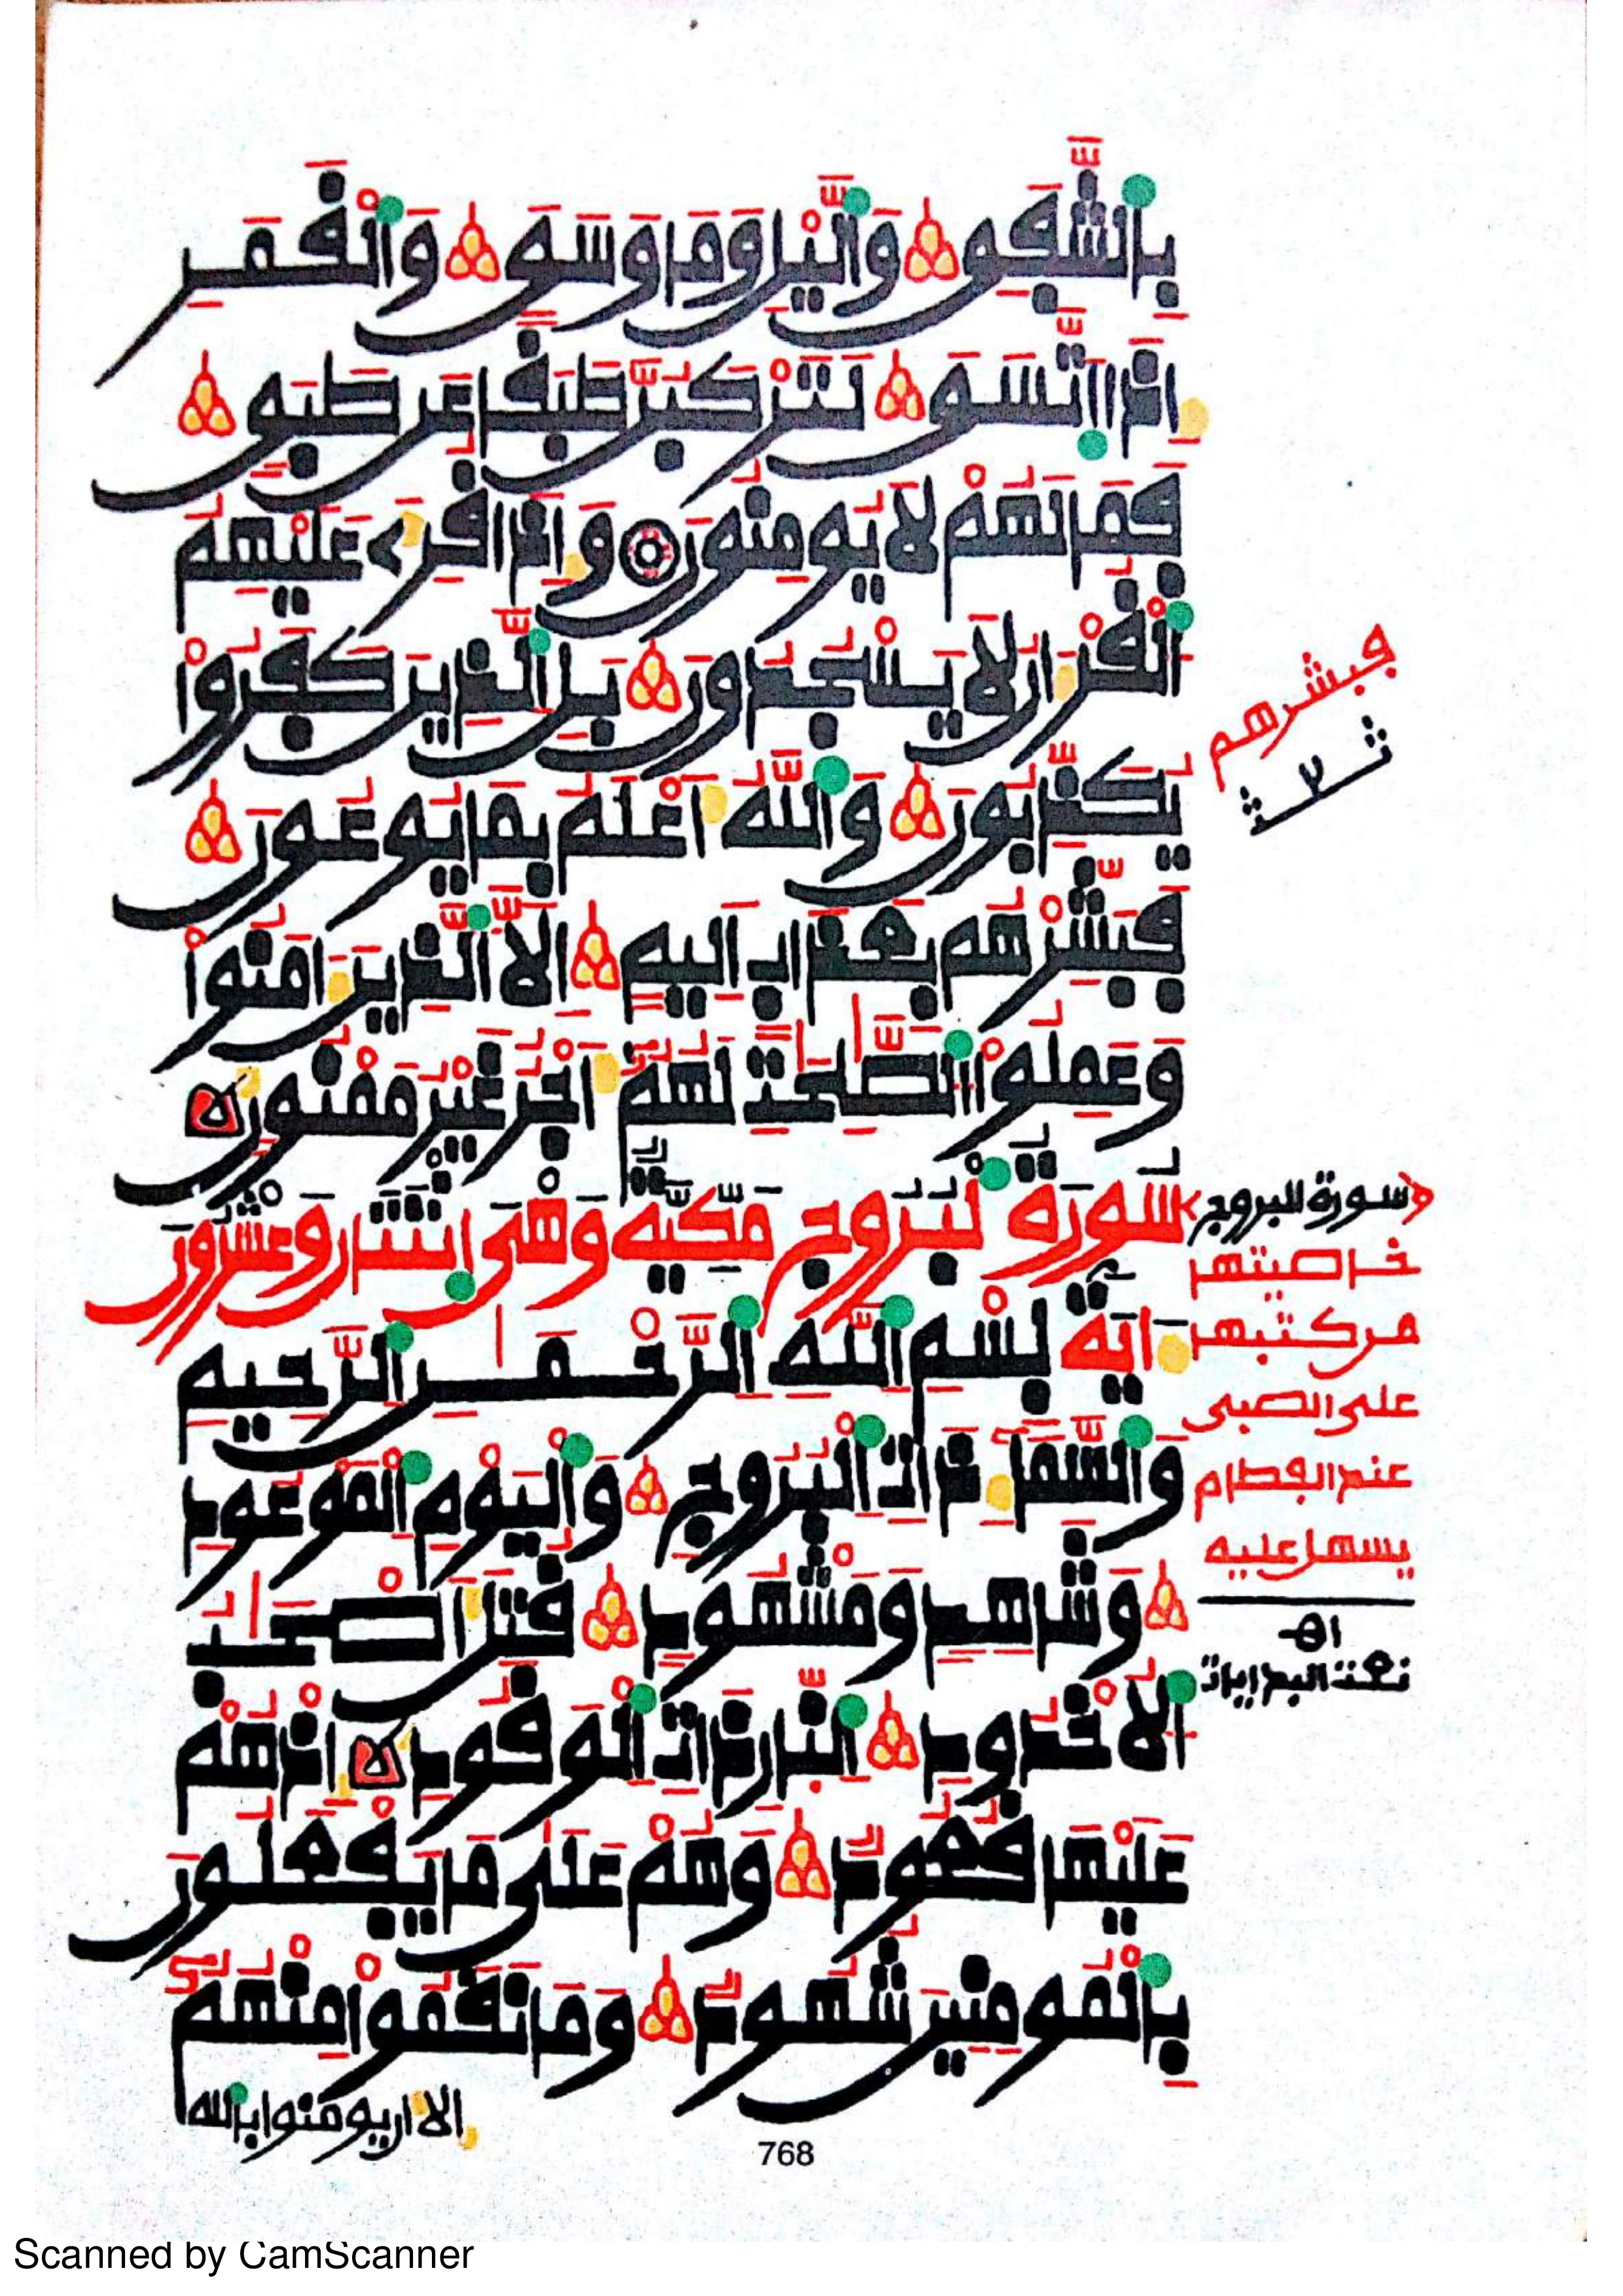 بِالشَّفَقِ وَالَّيْلِ وَمَا وَسَقَ وَالْقَمَرِ
إِذَا اتَّسَقَ لَتَرْكَبُنَّ طَبَقًا عَن طَبَقٍ
فَمَا لَهُمْ لَا يُومِنُونَ وَإِذَا قُرِئَ عَلَيْهِمُ
الْقُرْءَانُ لَا يَسْجُدُونَ بَلِ الَّذِينَ كَفَرُواْ
يُكَذِّبُونَ وَاللَّهُ أَعْلَمُ بِمَا يُوعُونَ
فَبَشِّرْهُم بِعَذَابٍ أَلِيمٍ إِلَّا الَّذِينَ ءَامَنُواْ
وَعَمِلُواْ الصَّٰلِحَٰتِ لَهُمُۥ أَجْرٌ غَيْرُ مَمْنُونٍ
سُورَةُ لْبُرُوجِ مَكِّيَّةٌ وَهْيَ اِثْنَتَانِ وَعِشْرُونَ
ءَايَةً بِسْمِ اللَّهِ الرَّحْمَٰنِ الرَّحِيمِ
وَالسَّمَاءِ ذَاتِ الْبُرُوجِ وَالْيَوْمِ الْمَوْعُودِ
وَشَاهِدٍ وَمَشْهُودٍ قُتِلَ أَصْحَٰبُ
الْأُخْدُودِ النَّارِ ذَاتِ الْوَقُودِ إِذْ هُمْ
عَلَيْهَا قُعُودٌ وَهُمْ عَلَىٰ مَا يَفْعَلُونَ
بِالْمُومِنِينَ شُهُودٌ وَمَا نَقَمُواْ مِنْهُمُۥ
إلا أن يومنوا بالله
فبشرهم
سورة البروج
خاصيتها
من كتبها
على الصبي
عند الفطام
يسهل عليه
اه
768
Scanned by CamScanner